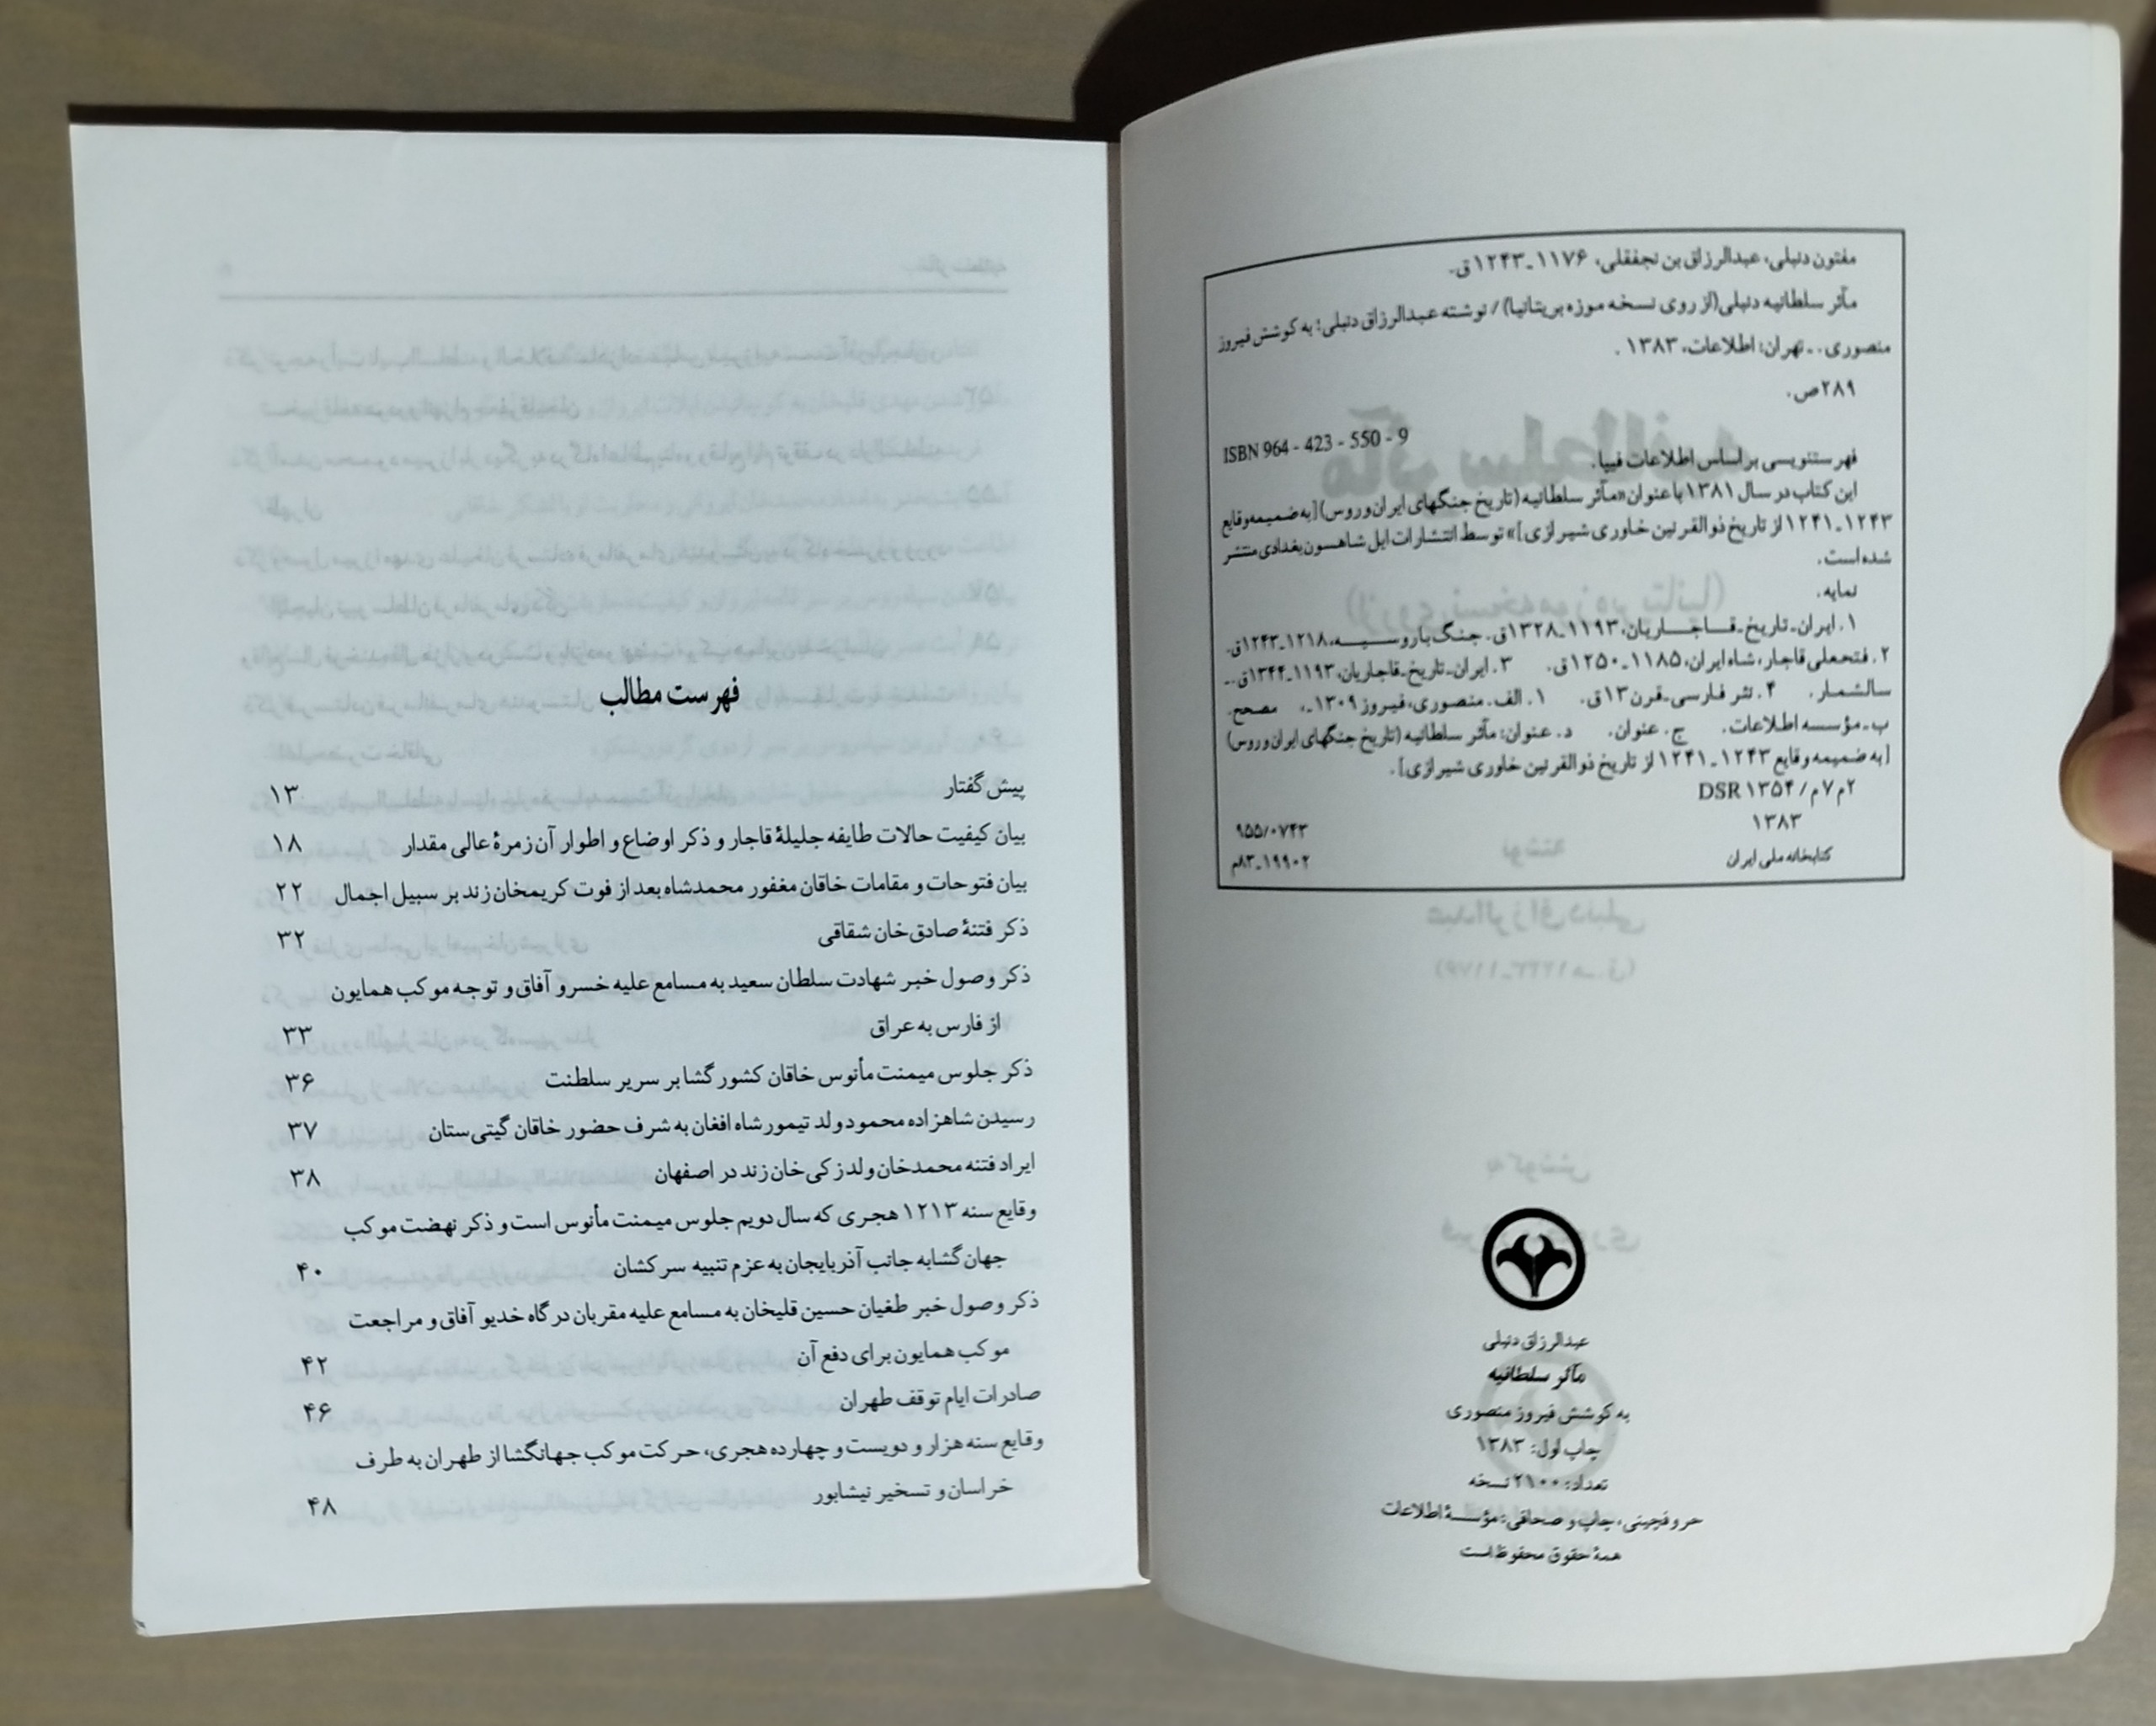 مفتون دنبلی، عبدالرزاق بن نجفقلی، ۱۱۷۶ـ۱۲۴۳ق.
مآثر سلطانیه دنبلی(از روی نسخه موزه بریتانیا) / نوشته عبدالرزاق دنبلی؛ به کوشش فیروز
منصوری. ـ تهران: اطلاعات، ۱۳۸۳ .
۲۸۹ص.
ISBN 964 - 423 - 550 - 9
فهرستنویسی براساس اطلاعات فیپا.
این کتاب در سال ۱۳۸۱ با عنوان «مآثر سلطانیه (تاریخ جنگهای ایران و روس) [به ضمیمه وقایع
۱۲۴۳ـ۱۲۴۱ از تاریخ ذوالقرنین خاوری شیرازی]» توسط انتشارات ایل شاهسون بغدادی منتشر
شده است.
نمایه.
۱. ایران ـ تاریخ ـ قاجاریان، ۱۱۹۳ـ۱۳۲۸ق. جنگ با روسیه، ۱۲۱۸ـ۱۲۴۳ق.
۲. فتحعلی قاجار، شاه ایران، ۱۱۸۵ـ۱۲۵۰ق. ۳. ایران ـ تاریخ ـ قاجاریان، ۱۱۹۳ـ۱۳۴۴ق. ـ
سالشمار. ۴. نثر فارسی ـ قرن ۱۳ق. ۱. الف. منصوری، فیروز ۱۳۰۹ـ، مصحح.
ب ـ مؤسسه اطلاعات. ج. عنوان. د. عنوان: مآثر سلطانیه (تاریخ جنگهای ایران و روس)
[به ضمیمه وقایع ۱۲۴۳ـ۱۲۴۱ از تاریخ ذوالقرنین خاوری شیرازی].
۲م۷م/ DSR ۱۳۵۴
۱۳۸۳
۹۵۵/۰۷۴۳
کتابخانه ملی ایران
۱۹۹۰۲ـ۸۳م
عبدالرزاق دنبلی
مآثر سلطانیه
به کوشش فیروز منصوری
چاپ اول: ۱۳۸۳
تعداد: ۲۱۰۰ نسخه
حروفچینی، چاپ و صحافی: مؤسسۀ اطلاعات
همۀ حقوق محفوظ است
فهرست مطالب
پیش گفتار ۱۳
بیان کیفیت حالات طایفه جلیلۀ قاجار و ذکر اوضاع و اطوار آن زمرۀ عالی مقدار ۱۸
بیان فتوحات و مقامات خاقان مغفور محمدشاه بعد از فوت کریمخان زند بر سبیل اجمال ۲۲
ذکر فتنۀ صادق‌خان شقاقی ۳۲
ذکر وصول خبر شهادت سلطان سعید به مسامع علیه خسرو آفاق و توجه موکب همایون
از فارس به عراق ۳۳
ذکر جلوس میمنت مأنوس خاقان کشورگشا بر سریر سلطنت ۳۶
رسیدن شاهزاده محمود ولد تیمورشاه افغان به شرف حضور خاقان گیتی‌ستان ۳۷
ایراد فتنه محمدخان ولد زکی خان زند در اصفهان ۳۸
وقایع سنه ۱۲۱۳ هجری که سال دویم جلوس میمنت مأنوس است و ذکر نهضت موکب
جهان‌گشا به جانب آذربایجان به عزم تنبیه سرکشان ۴۰
ذکر وصول خبر طغیان حسین قلیخان به مسامع علیه مقربان درگاه خدیو آفاق و مراجعت
موکب همایون برای دفع آن ۴۲
صادرات ایام توقف طهران ۴۶
وقایع سنه هزار و دویست و چهارده هجری، حرکت موکب جهانگشا از طهران به طرف
خراسان و تسخیر نیشابور ۴۸